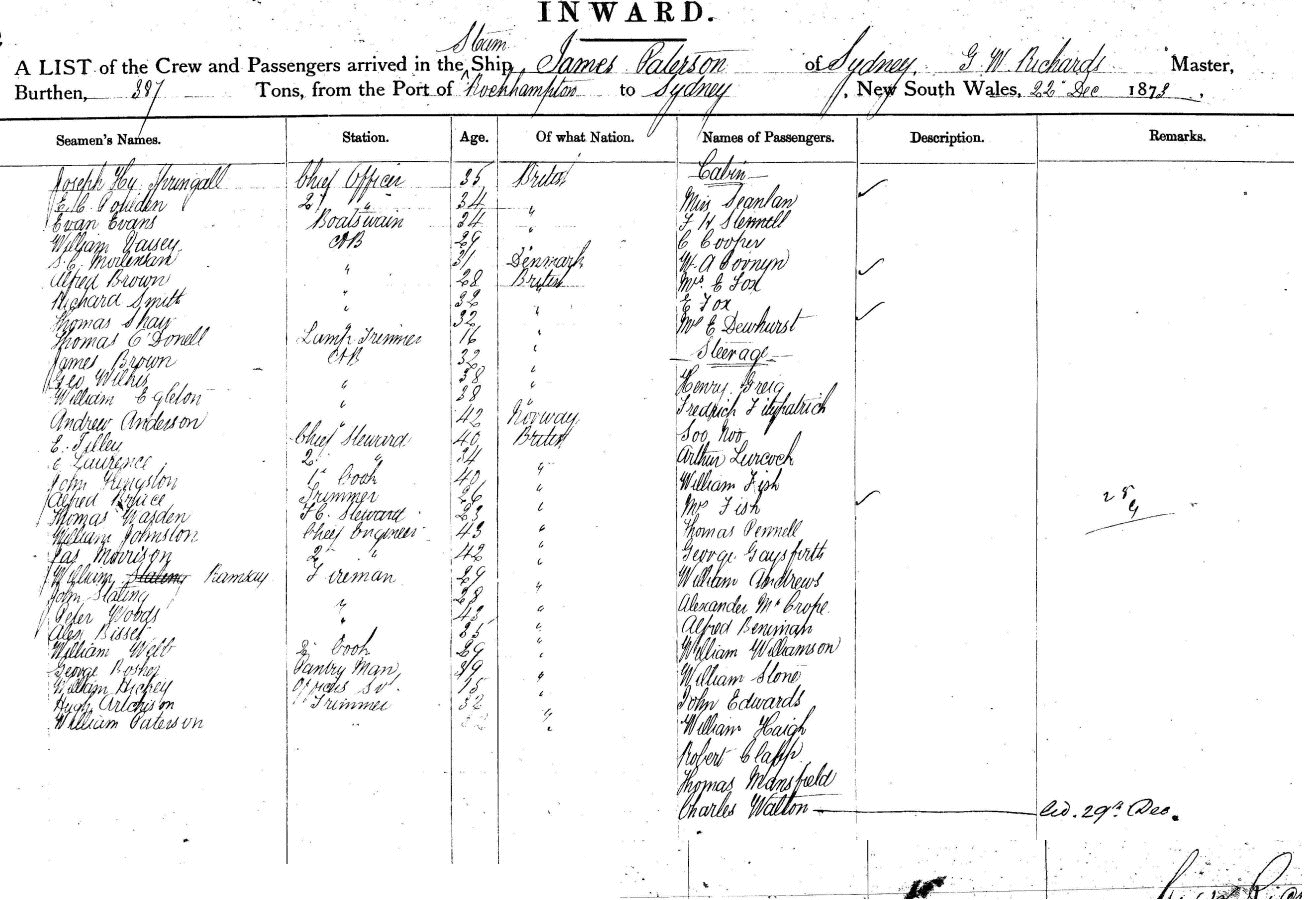 INWARD.
Steam
A LIST of the Crew and Passengers arrived in the Ship James Paterson of Sydney, G W Richards Master,
Burthen, 387 Tons, from the Port of Rockhampton to Sydney, New South Wales, 22 Dec 1878,
Seamen's Names. Station. Age. Of what Nation. Names of Passengers. Description. Remarks.
Joseph Hy Springall Chief Officer 35 British Cabin
E. C. 2d " 34 " Miss Scanlan
Evan Evans Boatswain 34 " F H Stennell
William Vaisey AB 29 C Cooper
S. C. Mortensen " 31 Denmark W. A
Alfred Brown " 28 British Mrs E Fox
Richard Smith " 32 " E Fox
Thomas Shaw 32 " Mrs E Dewhurst
Thomas O'Donell Lamp Trimmer 16 " Steerage
James Brown AB 32 "
Geo Wilkis " 38 " Henry Greig
William Egleton " 38 " Fredrich Fitzpatrich
Andrew Anderson " 42 Norway Soo Noo
E. Tilley Chief Steward 40 British Arthur Lurcock
C Laurence 2d " 34 "
John Kingston 1st Cook 40 " William Fish
Alfred Bruce Trimmer 26 " Mrs Fish
Thomas Warden F. C. Steward 23 " Thomas Pennell
William Johnston Chief Engineer 43 " George Gaysfirth
Jas Morrison 2d " 42 "
William Slating Ramsay Fireman 29 " William Andrews
John Slating " 28 " Alexander Mc Crope
Peter Woods " 43 " Alfred Beniman
Alex Bisset " 35 "
William Webb 2d Cook 29 " William Williamson
George Bosher Pantry Man 39 " William Stone
William Hickey Officers Sv't 15 " John Edwards
Hugh Aitchison Trimmer 32 "
William Paterson " 32 " William Haigh
Robert Clapp
Thomas Mansfield
Charles Walton 29th Dec.